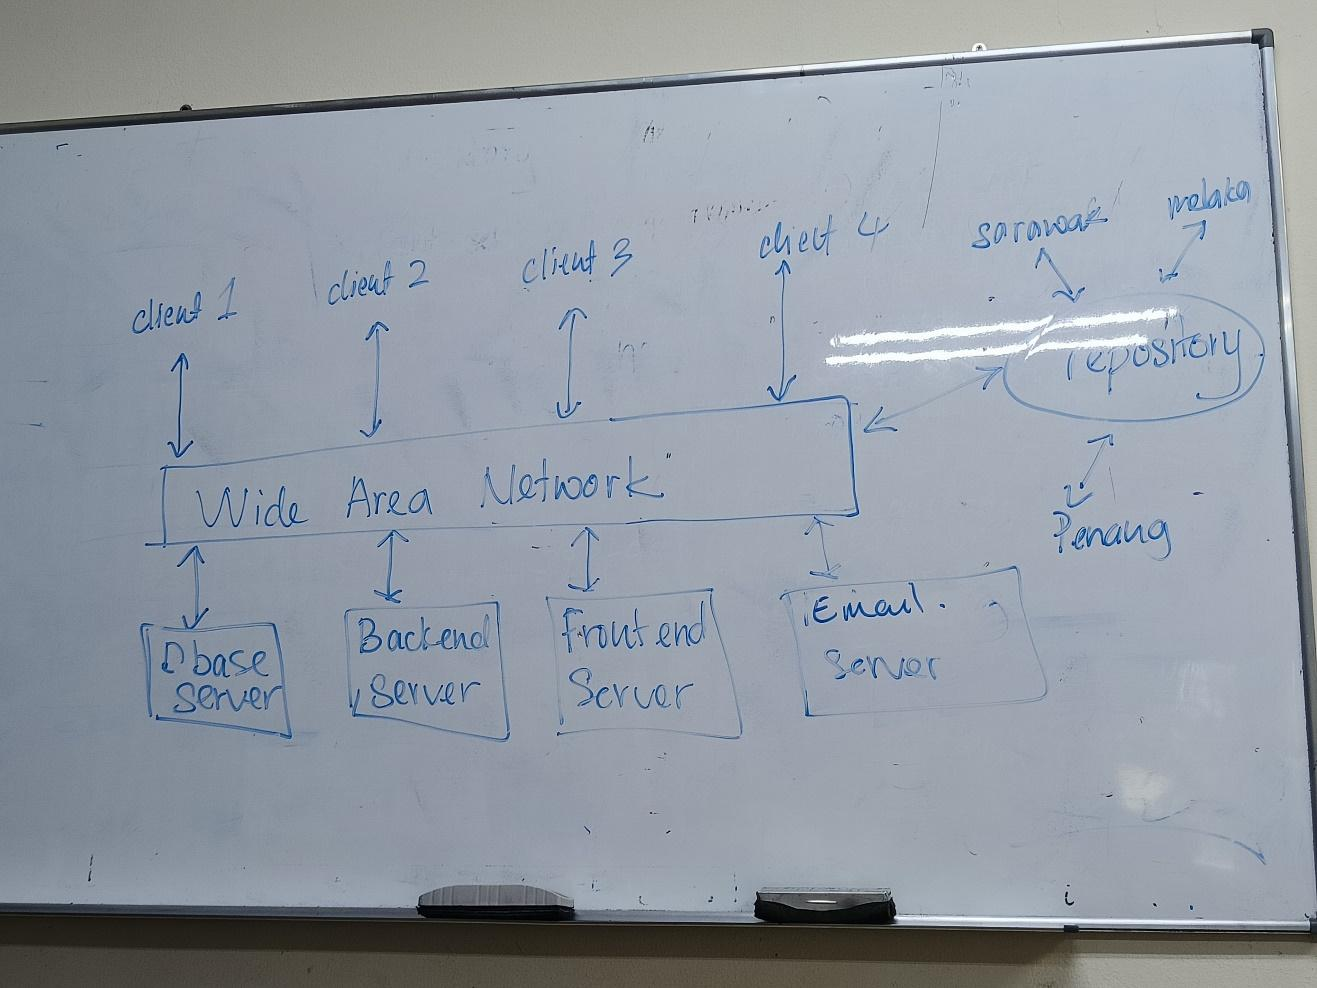 client 1
client 2
client 3
client 4
sarawak
melaka
repository
Wide Area Network
Penang
Dbase
server
Backend
server
Frontend
Server
Email.
server